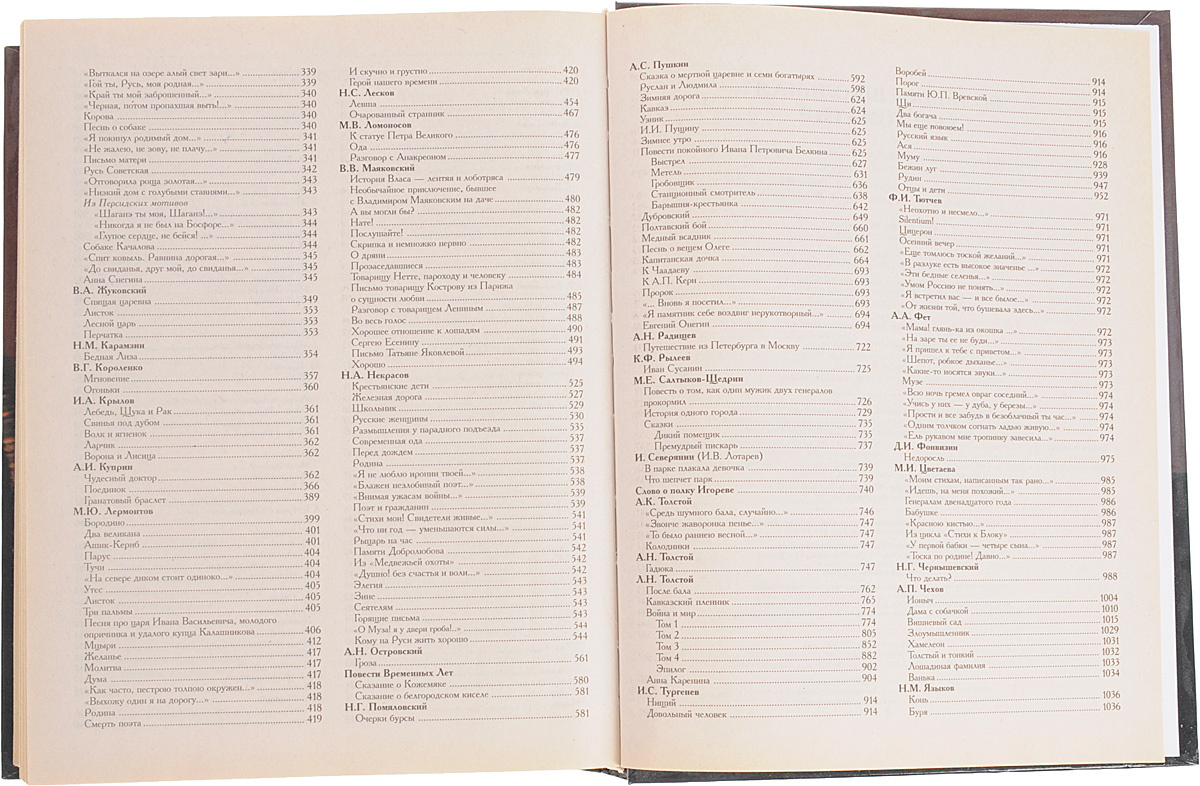 «Выткался на озере алый свет зари...» 339
«Гой ты, Русь, моя родная...» 339
«Край ты мой заброшенный...» 340
«Черная, потом пропахшая выть!...» 340
Корова 340
Песнь о собаке 340
«Я покинул родимый дом...» 341
«Не жалею, не зову, не плачу...» 341
Письмо матери 341
Русь Советская 342
«Отговорила роща золотая...» 343
«Низкий дом с голубыми ставнями...» 343
Из Персидских мотивов
«Шаганэ ты моя, Шаганэ!...» 343
«Никогда я не был на Босфоре...» 344
«Глупое сердце, не бейся! ...» 344
Собаке Качалова 344
«Спит ковыль. Равнина дорогая...» 345
«До свиданья, друг мой, до свиданья...» 345
Анна Снегина 345
В.А. Жуковский
Спящая царевна 349
Листок 353
Лесной царь 353
Перчатка 353
Н.М. Карамзин
Бедная Лиза 354
В.Г. Короленко
Мгновение 357
Огоньки 360
И.А. Крылов
Лебедь, Щука и Рак 361
Свинья под дубом 361
Волк и ягненок 361
Ларчик 362
Ворона и Лисица 362
А.И. Куприн
Чудесный доктор 362
Поединок 366
Гранатовый браслет 389
М.Ю. Лермонтов
Бородино 399
Два великана 401
Ашик-Кериб 401
Парус 404
Тучи 404
«На севере диком стоит одиноко...» 404
Утес 405
Листок 405
Три пальмы 405
Песня про царя Ивана Васильевича, молодого
опричника и удалого купца Калашникова 406
Мцыри 412
Желанье 417
Молитва 417
Дума 417
«Как часто, пестрою толпою окружен...» 418
«Выхожу один я на дорогу...» 418
Родина 418
Смерть поэта 419
И скучно и грустно 420
Герой нашего времени 420
Н.С. Лесков
Левша 454
Очарованный странник 467
М.В. Ломоносов
К статуе Петра Великого 476
Ода 476
Разговор с Анакреоном 477
В.В. Маяковский
История Власа — лентяя и лоботряса 479
Необычайное приключение, бывшее
с Владимиром Маяковским на даче 480
А вы могли бы? 482
Нате! 482
Послушайте! 482
Скрипка и немножко нервно 482
О дряни 483
Прозаседавшиеся 483
Товарищу Нетте, пароходу и человеку 484
Письмо товарищу Кострову из Парижа
о сущности любви 485
Разговор с товарищем Лениным 487
Во весь голос 488
Хорошее отношение к лошадям 490
Сергею Есенину 491
Письмо Татьяне Яковлевой 493
Хорошо 494
Н.А. Некрасов
Крестьянские дети 525
Железная дорога 527
Школьник 529
Русские женщины 530
Размышления у парадного подъезда 535
Современная ода 537
Перед дождем 537
Родина 537
«Я не люблю иронии твоей...» 538
«Блажен незлобивый поэт...» 538
«Внимая ужасам войны...» 539
Поэт и гражданин 539
«Стихи мои! Свидетели живые...» 541
«Что ни год — уменьшаются силы...» 541
Рыцарь на час 541
Памяти Добролюбова 542
Из «Медвежьей охоты» 542
«Душно! без счастья и воли...» 542
Элегия 543
Зине 543
Сеятелям 543
Горящие письма 543
«О Муза! я у двери гроба!..» 544
Кому на Руси жить хорошо 544
А.Н. Островский
Гроза 561
Повести Временных Лет
Сказание о Кожемяке 580
Сказание о белгородском киселе 581
Н.Г. Помяловский
Очерки бурсы 581
А.С. Пушкин
Сказка о мертвой царевне и семи богатырях 592
Руслан и Людмила 598
Зимняя дорога 624
Кавказ 624
Узник 625
И.И. Пущину 625
Зимнее утро 625
Повести покойного Ивана Петровича Белкина 625
Выстрел 627
Метель 631
Гробовщик 636
Станционный смотритель 638
Барышня-крестьянка 642
Дубровский 649
Полтавский бой 660
Медный всадник 661
Песнь о вещем Олеге 662
Капитанская дочка 664
К Чаадаеву 693
К А.П. Керн 693
Пророк 693
«... Вновь я посетил...» 693
«Я памятник себе воздвиг нерукотворный...» 694
Евгений Онегин 694
А.Н. Радищев
Путешествие из Петербурга в Москву 722
К.Ф. Рылеев
Иван Сусанин 725
М.Е. Салтыков-Щедрин
Повесть о том, как один мужик двух генералов
прокормил 726
История одного города 729
Сказки 735
Дикий помещик 735
Премудрый пискарь 737
И. Северянин (И.В. Лотарев)
В парке плакала девочка 739
Что шепчет парк 739
Слово о полку Игореве 740
А.К. Толстой
«Средь шумного бала, случайно...» 746
«Звонче жаворонка пенье...» 747
«То было раннею весной...» 747
Колодники 747
А.Н. Толстой
Гадюка 747
Л.Н. Толстой
После бала 762
Кавказский пленник 765
Война и мир 774
Том 1 774
Том 2 805
Том 3 852
Том 4 882
Эпилог 902
Анна Каренина 904
И.С. Тургенев
Нищий 914
Довольный человек 914
Воробей 914
Порог 914
Памяти Ю.П. Вревской 915
Щи 915
Два богача 915
Мы еще повоюем! 916
Русский язык 916
Ася 916
Муму 928
Бежин луг 939
Рудин 947
Отцы и дети 952
Ф.И. Тютчев
«Неохотно и несмело...» 971
Silentium! 971
Цицерон 971
Осенний вечер 971
«Еще томлюсь тоской желаний...» 971
«В разлуке есть высокое значенье ...» 972
«Эти бедные селенья...» 972
«Умом Россию не понять...» 972
«Я встретил вас — и все былое...» 972
«От жизни той, что бушевала здесь...» 972
А.А. Фет
«Мама! глянь-ка из окошка ...» 972
«На заре ты ее не буди...» 973
«Я пришел к тебе с приветом...» 973
«Шепот, робкое дыханье...» 973
«Какие-то носятся звуки...» 973
Музе 973
«Всю ночь гремел овраг соседний...» 974
«Учись у них — у дуба, у березы...» 974
«Прости и все забудь в безоблачный ты час...» 974
«Одним толчком согнать ладью живую...» 974
«Ель рукавом мне тропинку завесила...» 974
Д.И. Фонвизин
Недоросль 975
М.И. Цветаева
«Моим стихам, написанным так рано...» 985
«Идешь, на меня похожий...» 985
Генералам двенадцатого года 986
Бабушке 986
«Красною кистью...» 987
Из цикла «Стихи к Блоку» 987
«У первой бабки — четыре сына...» 987
«Тоска по родине! Давно...» 987
Н.Г. Чернышевский
Что делать? 988
А.П. Чехов
Ионыч 1004
Дама с собачкой 1010
Вишневый сад 1015
Злоумышленник 1029
Хамелеон 1031
Толстый и тонкий 1032
Лошадиная фамилия 1033
Ванька 1034
Н.М. Языков
Конь 1036
Буря 1036